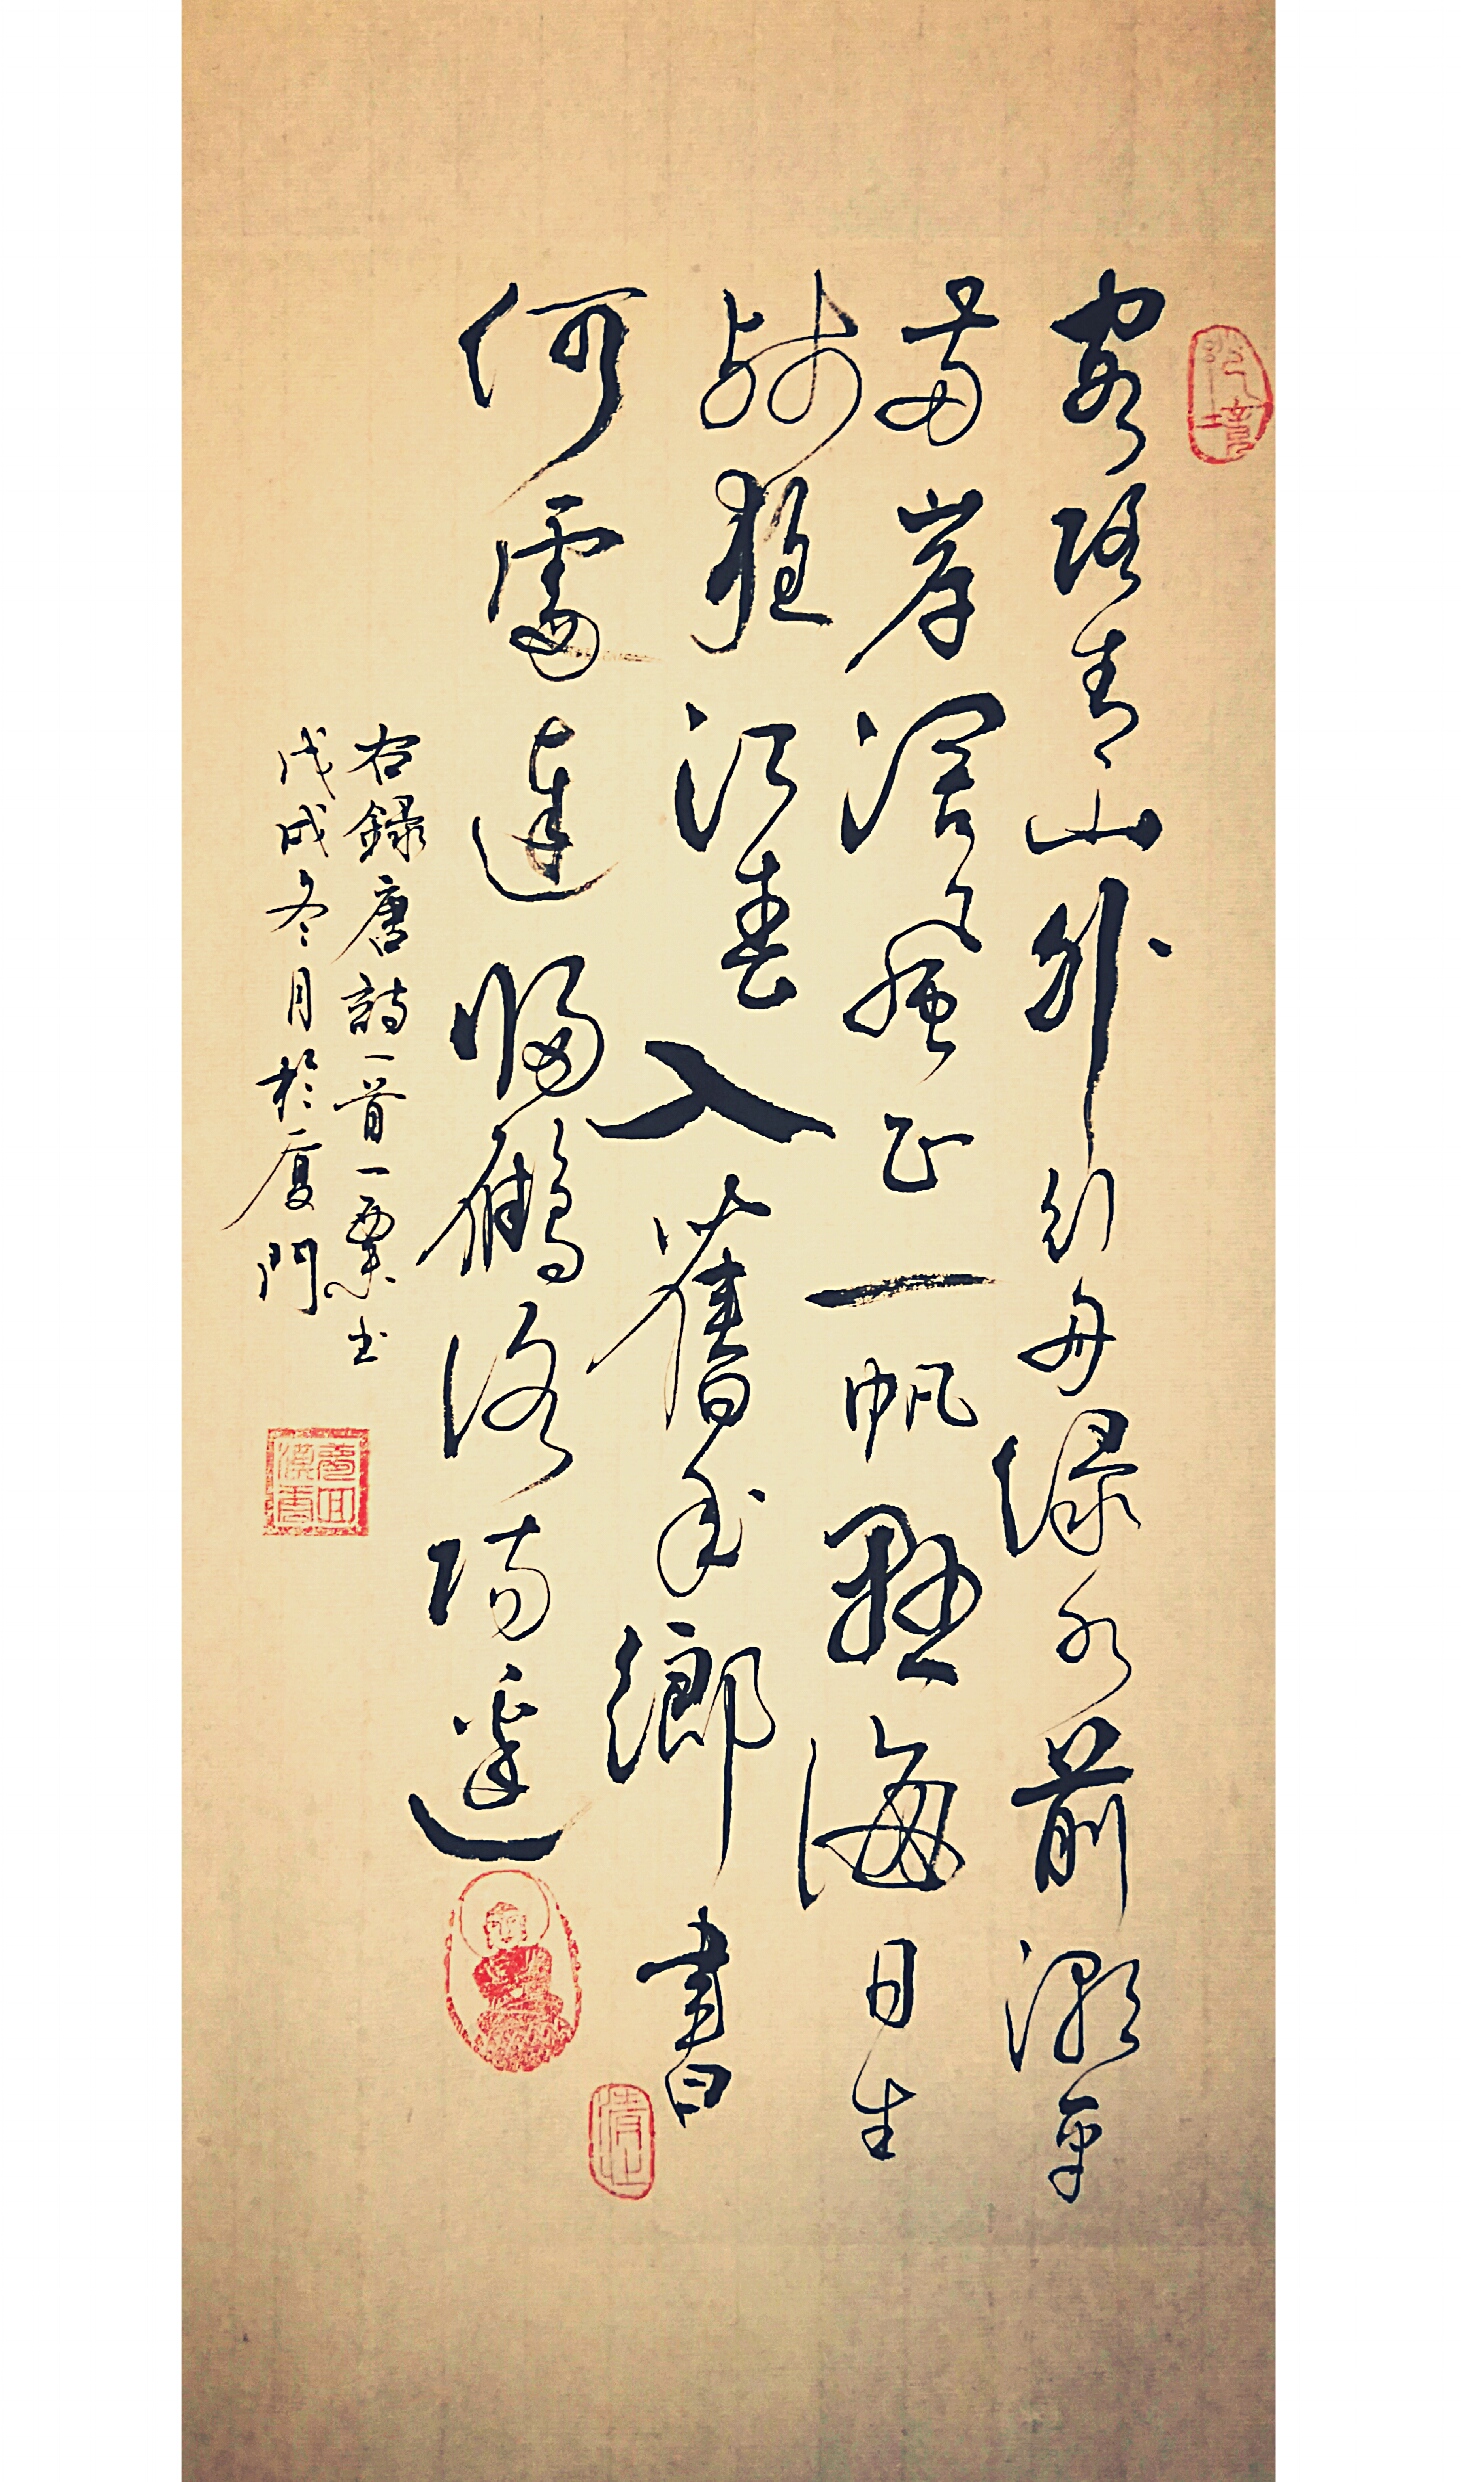 客路青山外行舟緑水前潮平
兩岸濶風正一帆懸海日生
殘夜江春入舊年鄉書
何處達歸雁洛陽邊
右錄唐詩一首一粟书
戊戌冬月於廈門
夢回漢唐